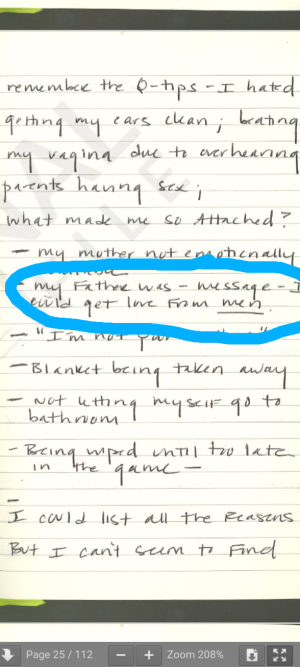 remember the Q-tips - I hated
getting my ears clean ; beating
my vagina due to overhearing
parents having sex ;
what made me so Attached?
- my mother not emotionally
- my Father was - message - I
could get love From men.
- "I'm not
- Blanket being taken away
- Not letting myself go to
bathroom
- Being wiped until too late
in the game -
-
I could list all the Reasons
But I can't seem to Find
Page 25 / 112 − + Zoom 208%